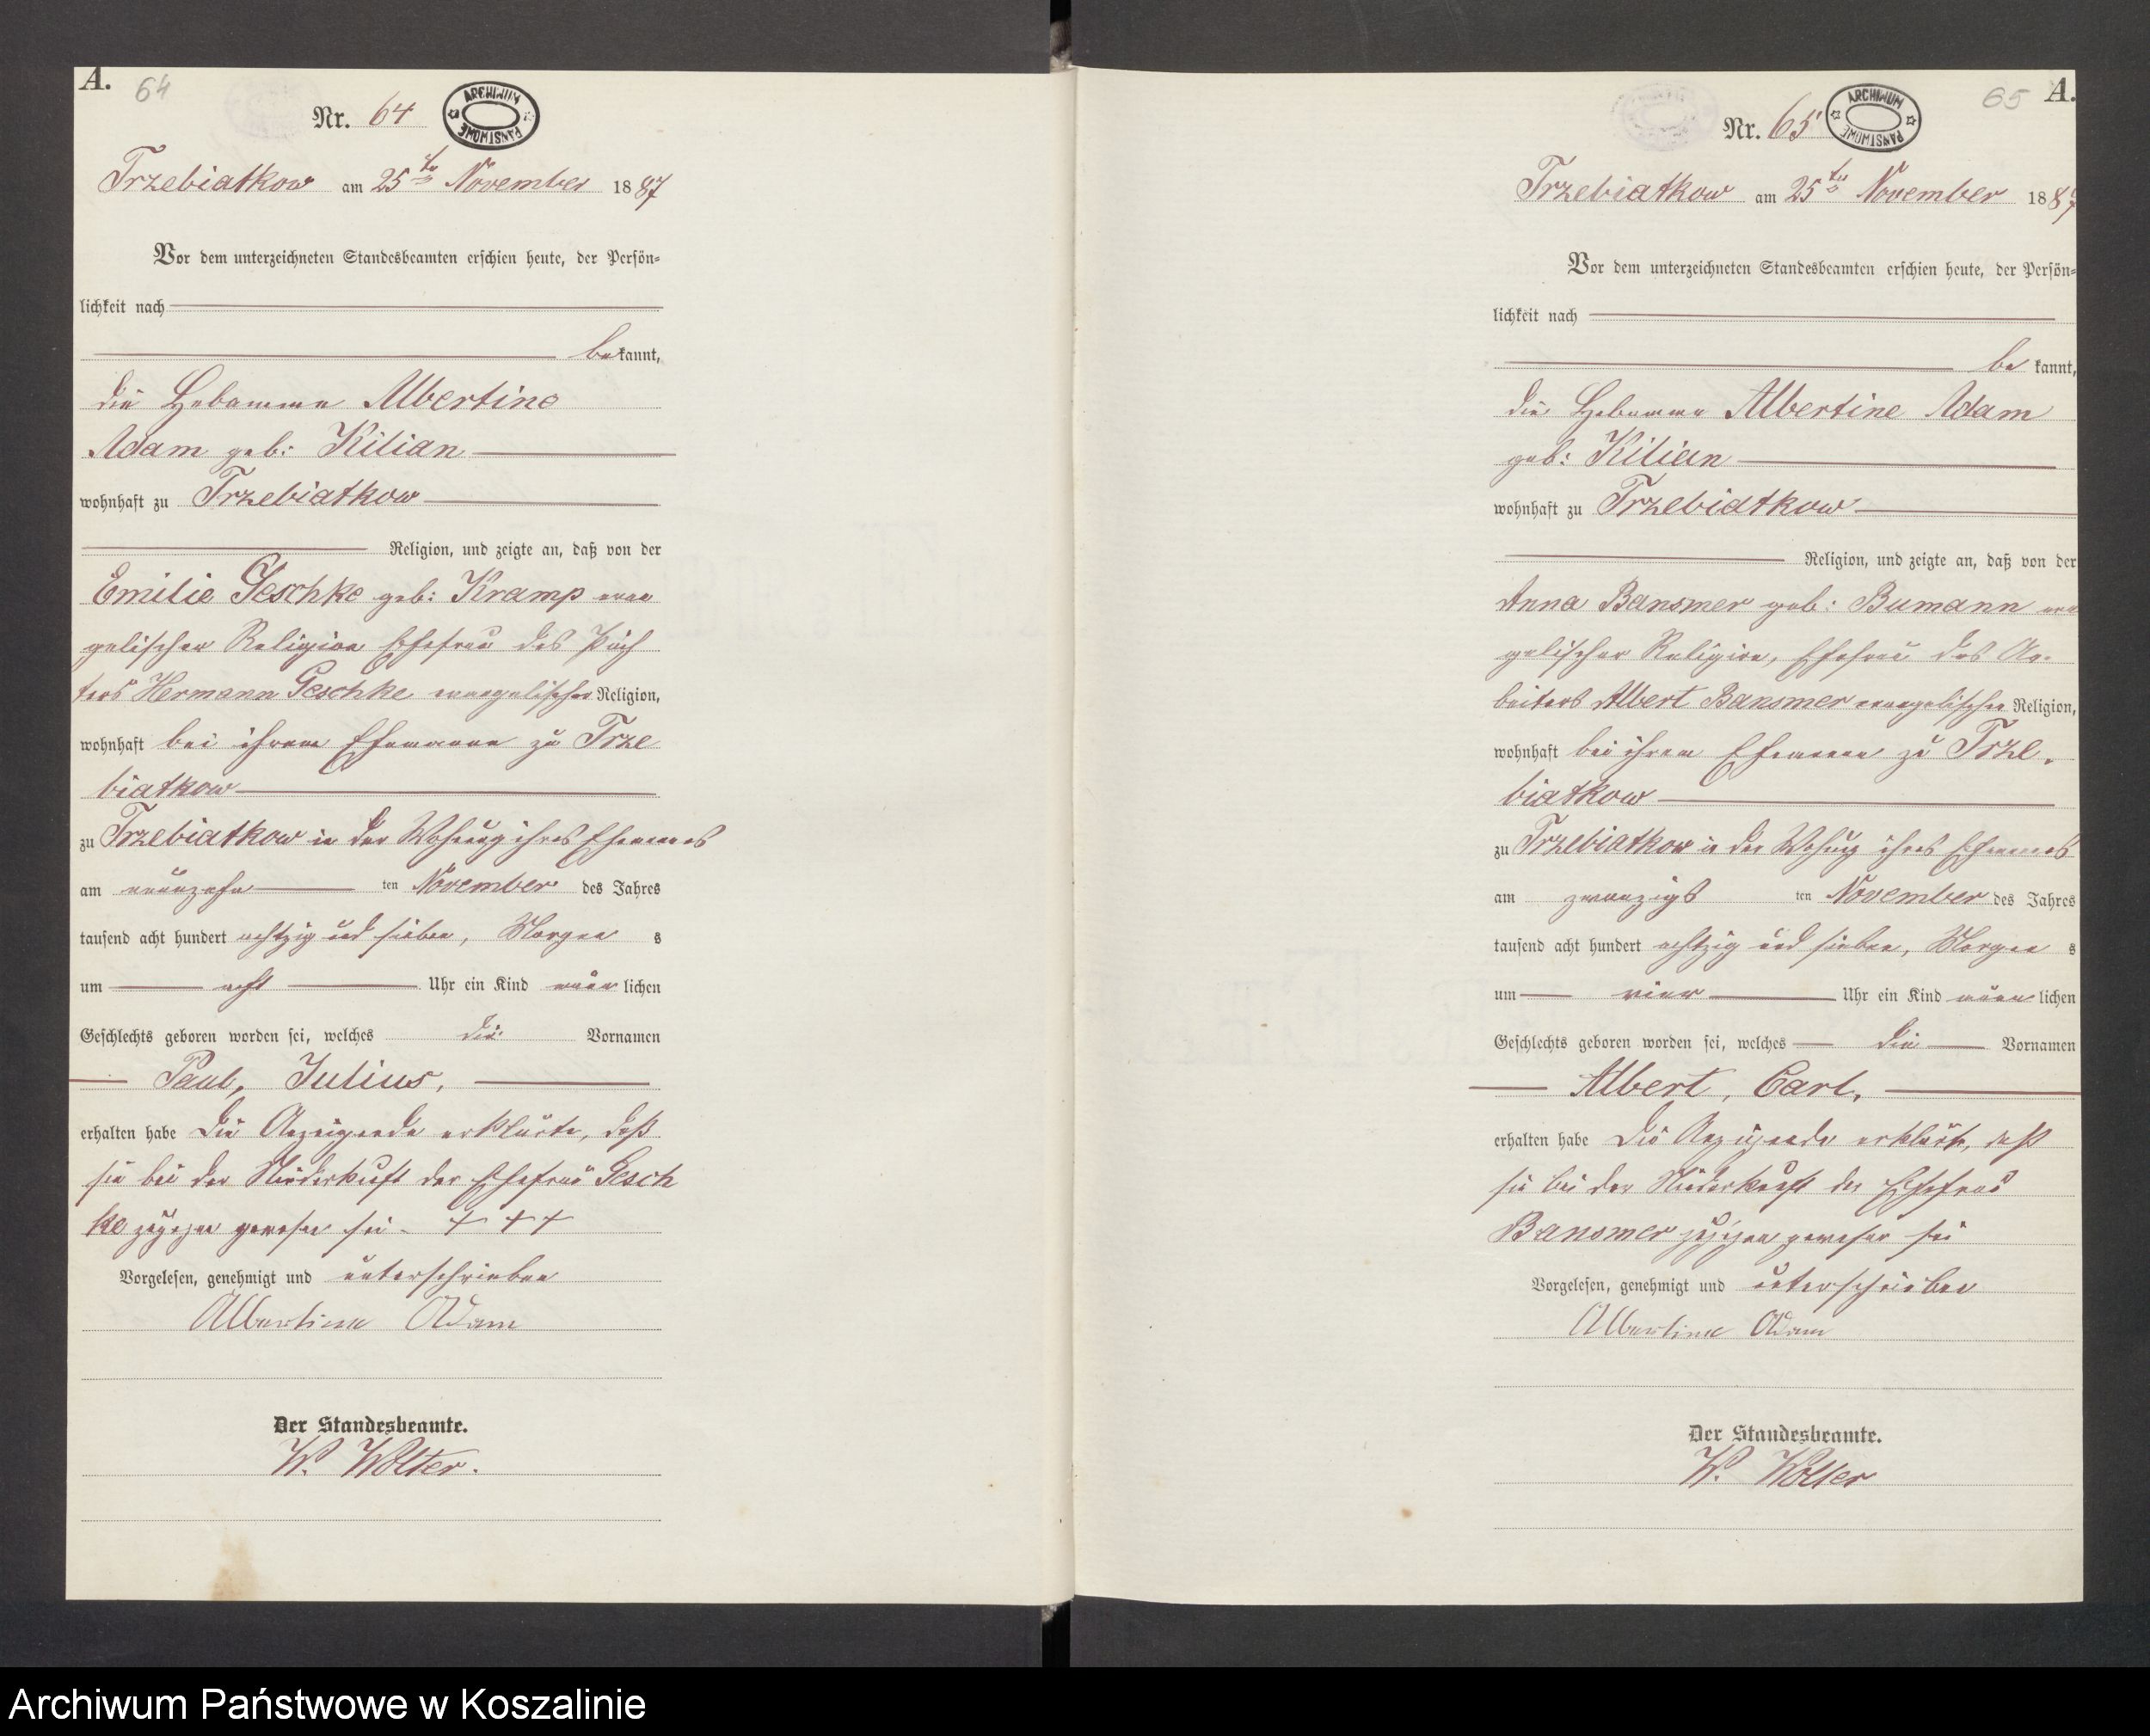 A.
64
Nr. 64
ARCHIWUM PAŃSTWOWE
Trzebiatkow am 25ten November 1887
Vor dem unterzeichneten Standesbeamten erschien heute, der Persön=
lichkeit nach
bekannt,
die Hebamme Albertine
Adam geb: Kilian
wohnhaft zu Trzebiatkow
Religion, und zeigte an, daß von der
Emilie Geschke geb: Kramp evan
gelischer Religion Ehefrau des Päch
ters Hermann Geschke evangelischer Religion,
wohnhaft bei ihrem Ehemanne zu Trze
biatkow
zu Trzebiatkow in der Wohnung ihres Ehemannes
am neunzehn ten November des Jahres
tausend acht hundert achtzig und sieben, Morgen s
um acht Uhr ein Kind männlichen
Geschlechts geboren worden sei, welches die Vornamen
Paul, Julius,
erhalten habe Die Anzeigende erklärte, daß
sie bei der Niederkunft der Ehefrau Gesch
ke zugegen gewesen sei. + + +
Vorgelesen, genehmigt und unterschrieben
Albertine Adam
Der Standesbeamte.
W. Wolter.
65
A.
Nr. 65
ARCHIWUM PAŃSTWOWE
Trzebiatkow am 25ten November 1887
Vor dem unterzeichneten Standesbeamten erschien heute, der Persön=
lichkeit nach
be kannt,
die Hebamme Albertine Adam
geb: Kilian
wohnhaft zu Trzebiatkow
Religion, und zeigte an, daß von der
Anna Bansmer geb: Bumann evan
gelischer Religion, Ehefrau des Ar-
beiters Albert Bansmer evangelischer Religion,
wohnhaft bei ihrem Ehemanne zu Trze-
biatkow
zu Trzebiatkow in der Wohnung ihres Ehemannes
am zwanzigs ten November des Jahres
tausend acht hundert achtzig und sieben, Morgen s
um vier Uhr ein Kind männlichen
Geschlechts geboren worden sei, welches die Vornamen
Albert, Carl,
erhalten habe Die Anzeigende erklärte, daß
sie bei der Niederkunft der Ehefrau
Bansmer zugegen gewesen sei
Vorgelesen, genehmigt und unterschrieben
Albertine Adam
Der Standesbeamte.
W. Wolter
Archiwum Państwowe w Koszalinie